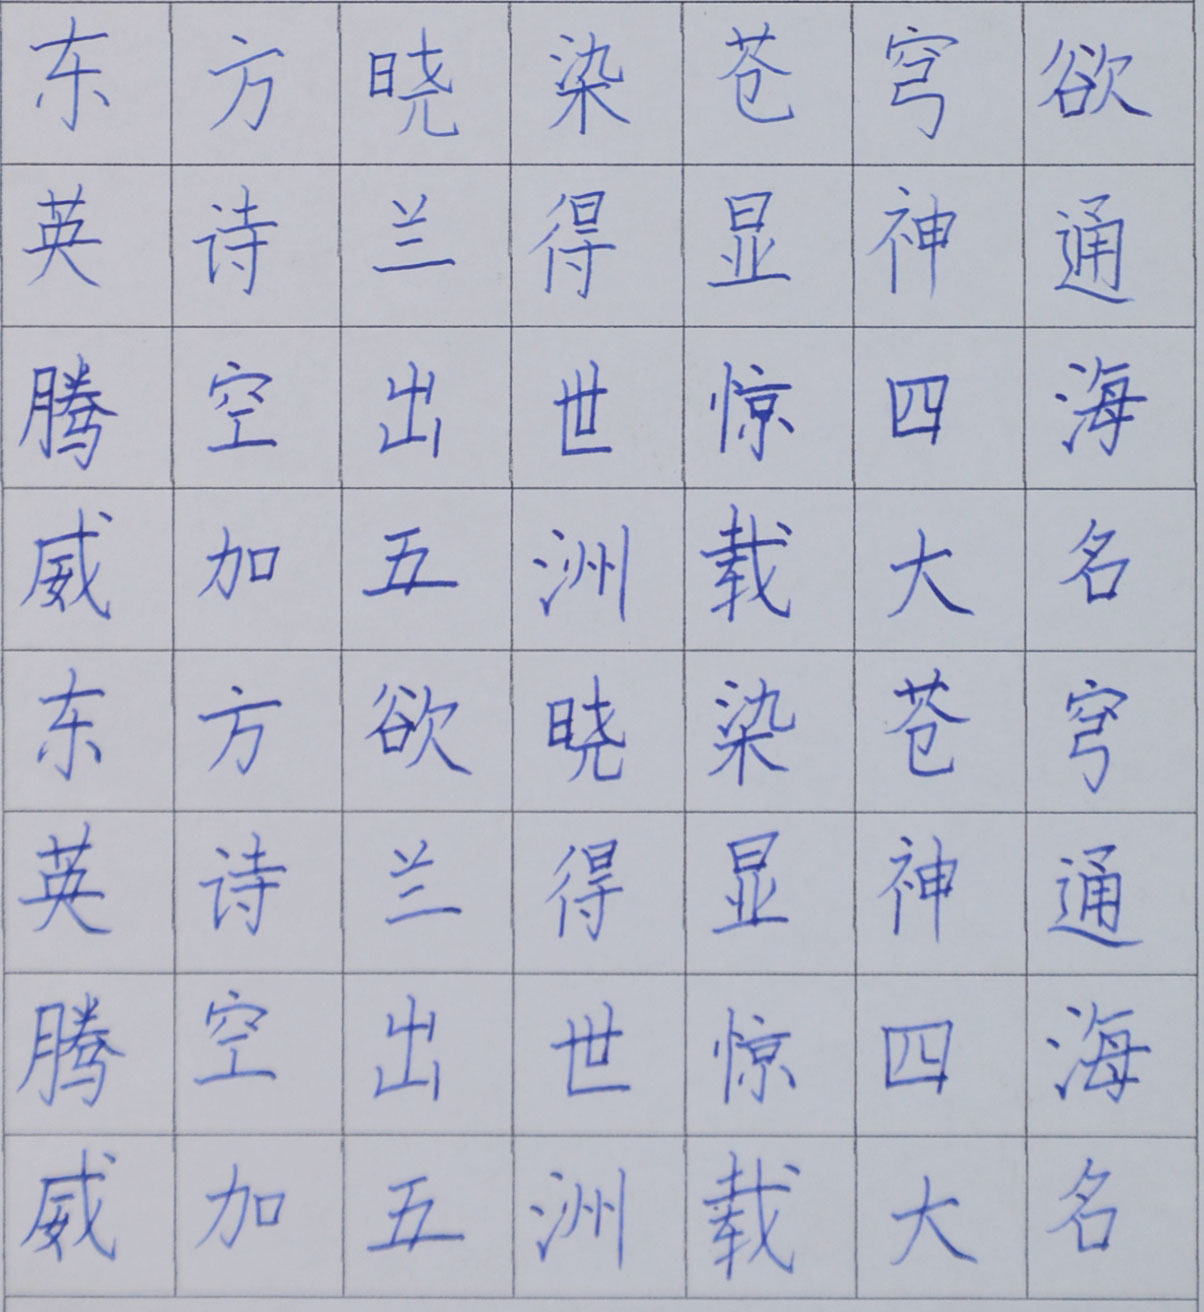 东方晓染苍穹欲
英诗兰得显神通
腾空出世惊四海
威加五洲载大名
东方欲晓染苍穹
英诗兰得显神通
腾空出世惊四海
威加五洲载大名